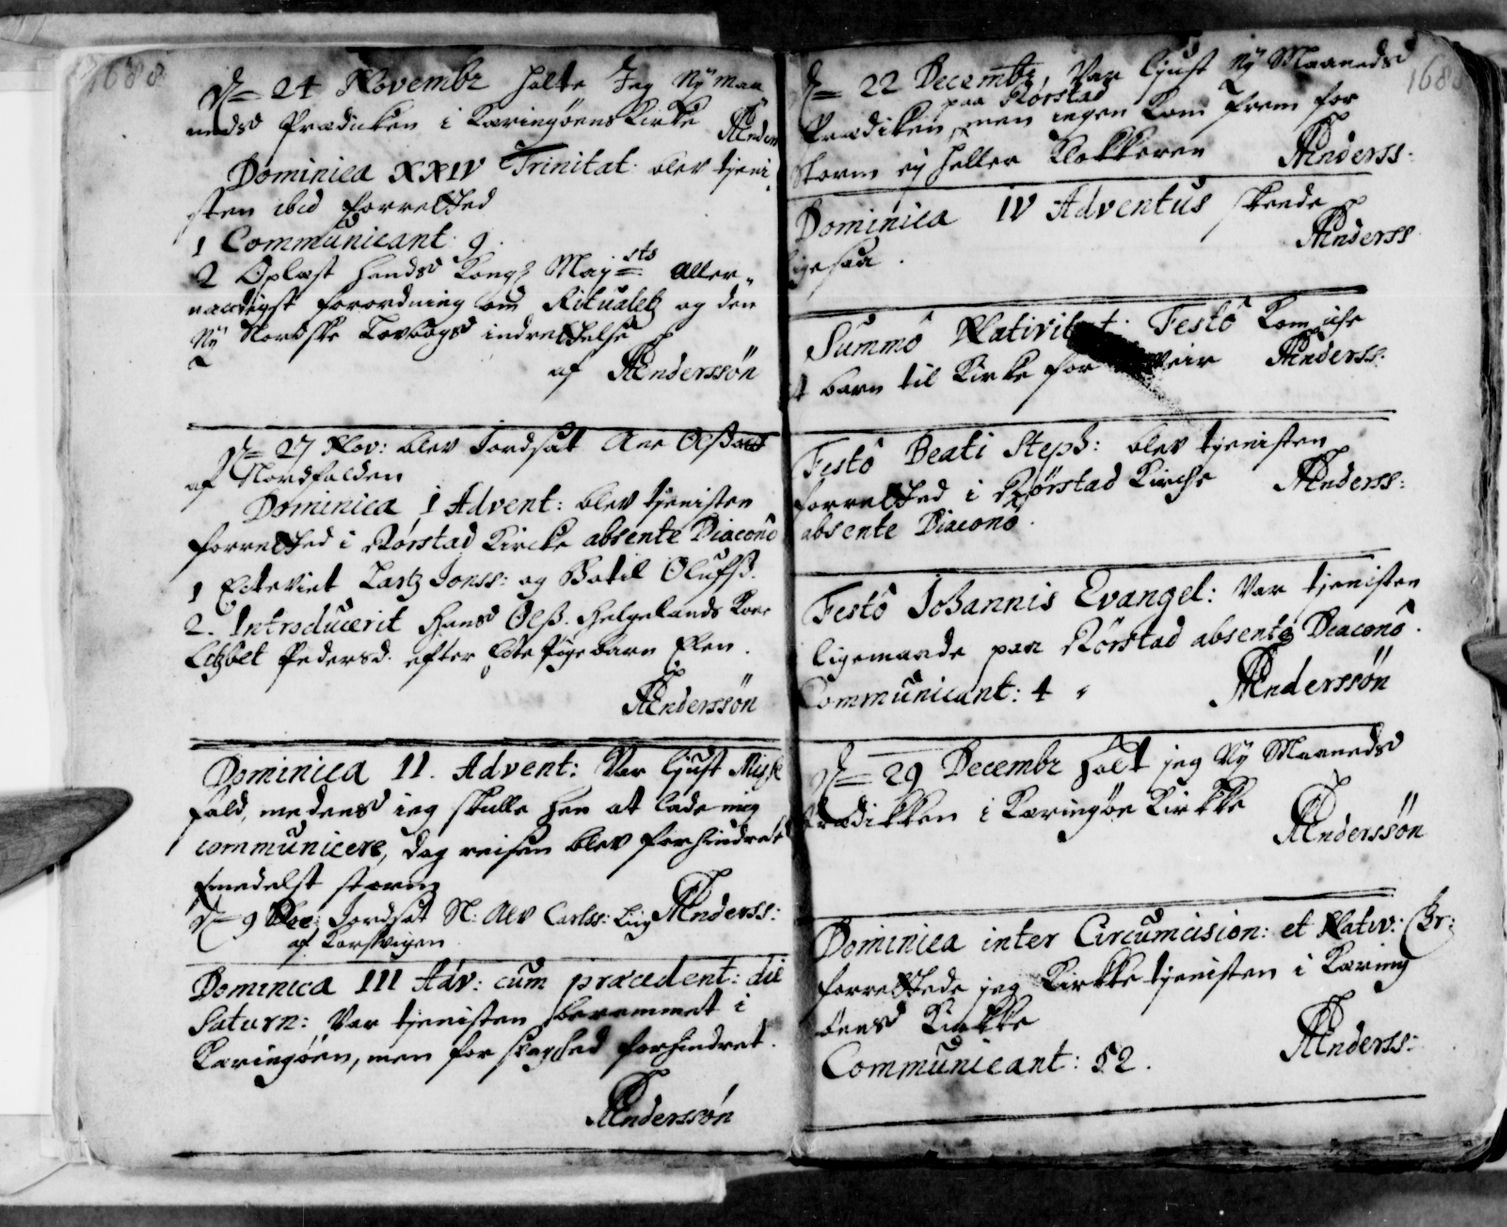 1688
D= 24 Novembr holte Jeg Nÿ Maa
neds Prædicken i Kæringøens Kircke Anders
Dominica XXIV Trinitat: blev tjeni,,
sten ibid forretted
1 Communicant: 9.
2 Oplæst Hands Kongl Maÿ=sts aller,,
naadigst forordning om Ritualetz og den
Nÿ Norske Lovbogs indrettelse
af Anderssøn
D= 27 Nov: blev Jordsat Ane
af Nordfolden
Dominica 1 Advent: blev tjenisten
forretted i Rørstad Kircke absente Diaconô
1 Ectevict Lartz Jonss: og Botil Olufsd.
2. Introducerit Hans Olss. Helgelands Kone
Litzbet Pedersd. efter Pigebarn Elen.
Anderssøn
Dominica II. Advent: Var liust
fald, medens ieg skulle hen at lade mig
communicere, dog reisen blev forhindret
formedelst storm
D= 9 Dec: Jordsat N: Alv Carlss: Anderss:
af Korsvigen
Dominica III Adv: cum præcedent: die
Saturn: Var tjenisten berammet i
Kæringøen, men for forhindret.
Anderssøn
1688
D= 22 Decembr, Var liust Nÿ Maaneds
Prædiken paa Rørstad, men ingen kom frem for
Storm eÿ heller Klokkeren Anderss:
Dominica IV Adventus skeede
ligesaa. Anderss
Summô Nativitat: Festô kom iche
et barn til Kirke for Veir Anderss:
Festô Beati Steph: blev tjenisten
forretted i Rørstad Kirche Anderss:
absente Diaconô.
Festô Johannis Evangel: Var tjenisten
ligemaade paa Rørstad absente Diaconô.
Communicant: 4 Anderssøn
D= 29 Decembr holt jeg Nÿ Maaneds
Prædikken i Kæringøe Kirkke
Anderssøn
Dominica inter Circumcision: et Nativ: Chr:
forrettede jeg Kirkke tjenisten i Kæring
øens Kirkke
Communicant: 52. Anderss: